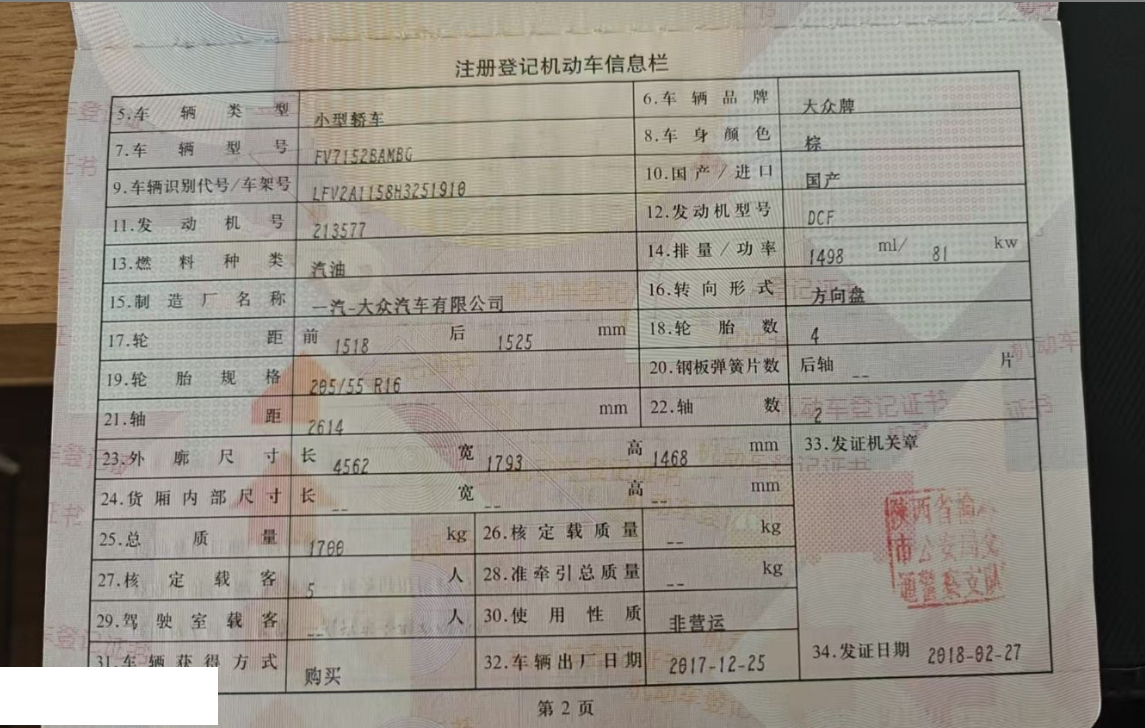 注册登记机动车信息栏
5.车辆类型 小型轿车 6.车辆品牌 大众牌
7.车辆型号 FV7152BAMBG 8.车身颜色 棕
9.车辆识别代号/车架号 LFV2A1158H3251910 10.国产/进口 国产
11.发动机号 213577 12.发动机型号 DCF
13.燃料种类 汽油 14.排量/功率 1498 ml/ 81 kw
15.制造厂名称 一汽-大众汽车有限公司 16.转向形式 方向盘
17.轮距 前 1518 后 1525 mm 18.轮胎数 4
19.轮胎规格 205/55 R16 20.钢板弹簧片数 后轴 -- 片
21.轴距 2614 mm 22.轴数 2
23.外廓尺寸 长 4562 宽 1793 高 1468 mm 33.发证机关章
24.货厢内部尺寸 长 -- 宽 -- 高 -- mm
25.总质量 1700 kg 26.核定载质量 -- kg
27.核定载客 5 人 28.准牵引总质量 -- kg
29.驾驶室载客 -- 人 30.使用性质 非营运
31.车辆获得方式 购买 32.车辆出厂日期 2017-12-25 34.发证日期 2018-02-27
陕西省渝
市公安局交
通警察支队
第2页